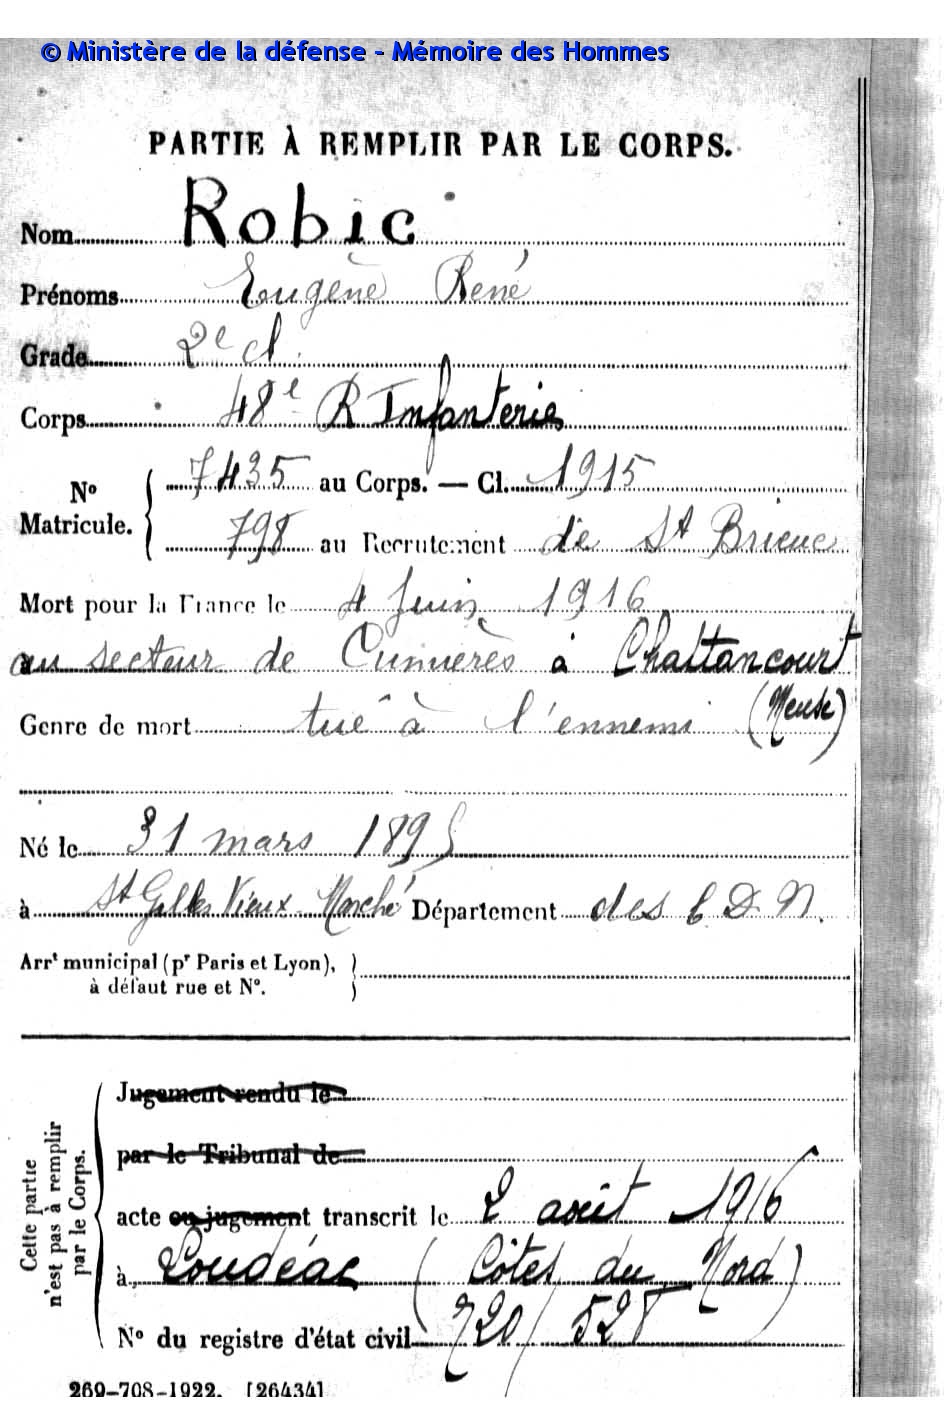 © Ministère de la défense - Mémoire des Hommes
PARTIE À REMPLIR PAR LE CORPS.
Nom Robic
Prénoms Eugène René
Grade 2e cl.
Corps 48e R Infanterie
No Matricule. 7435 au Corps. — Cl. 1915
798 au Recrutement de St Brieuc
Mort pour la France le 4 Juin 1916
au secteur de Cumières à Chattancourt
(Meuse)
Genre de mort tué à l'ennemi
Né le 31 mars 1895
à St Gilles Vieux Marché Département des C D N.
Arrt municipal (pr Paris et Lyon),
à défaut rue et No.
Cette partie n'est pas à remplir par le Corps.
Jugement rendu le
par le Tribunal de
acte ou jugement transcrit le 2 août 1916
à Loudéac (Côtes du Nord)
No du registre d'état civil 720/528
269-708-1922. [26434]